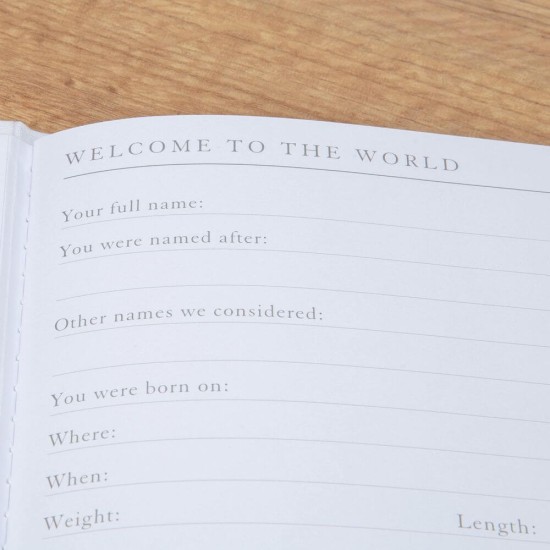 WELCOME TO THE WORLD
Your full name:
You were named after:
Other names we considered:
You were born on:
Where:
When:
Weight: Length: